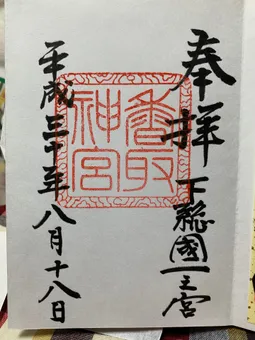 奉拝
下總國一之宮
香取
神宮
平成三十年八月十八日